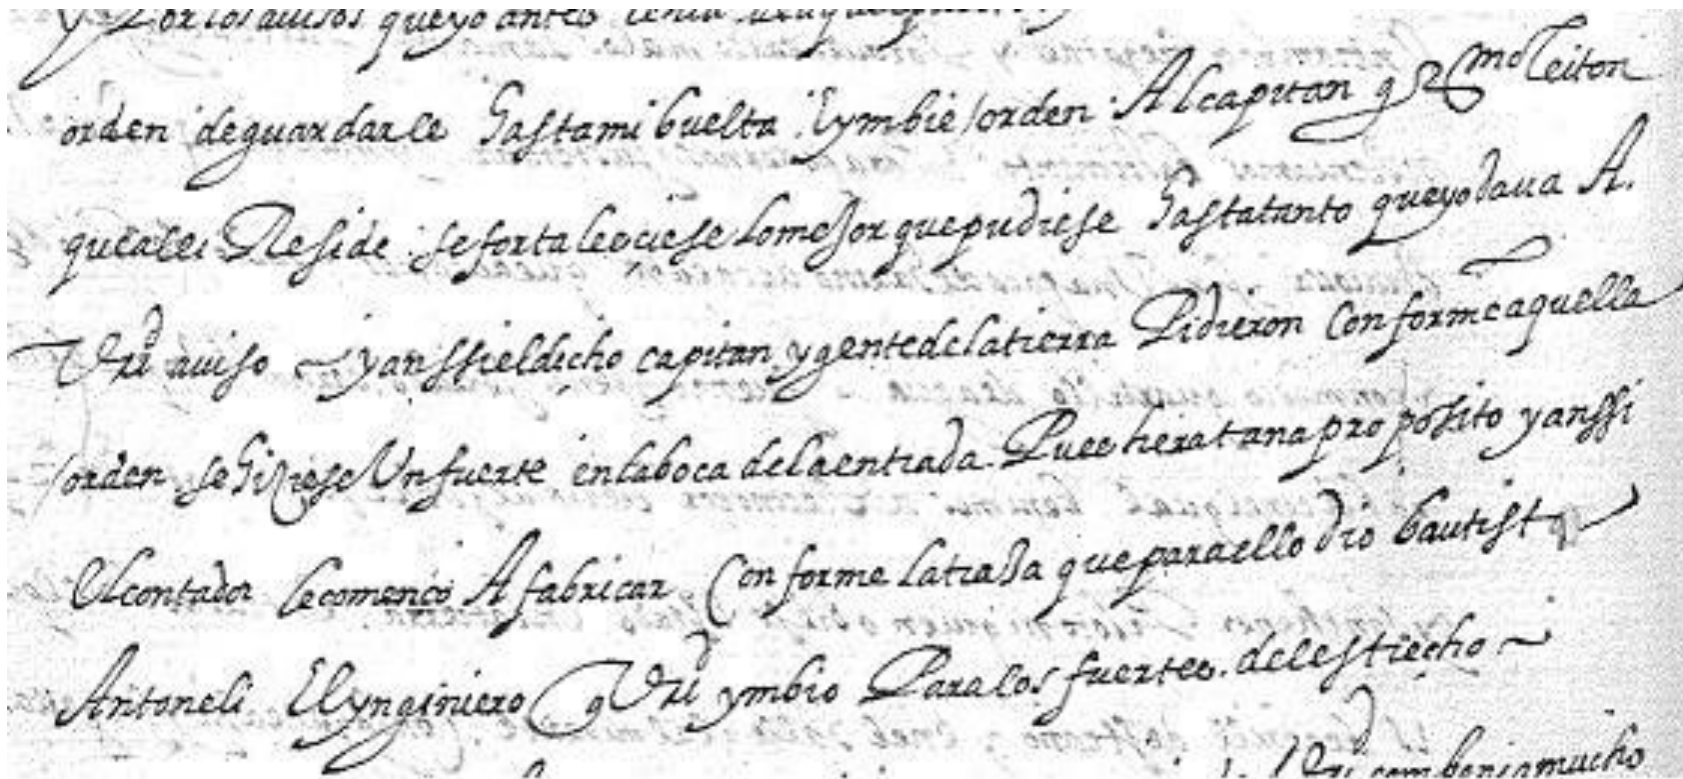 y Por los avisos que yo antes tenia
orden de guardarle Hasta mi buelta E ymbie orden Al capitan g R^mo Leiton
que alli Reside se fortaleciese lo mejor que pudiese Hasta tanto que yo dava A.
V M^d aviso y anssi el dicho capitan y gente de la tierra Pidieron Conforme aquella
orden se Hiziese Un fuerte en la boca de la entrada Pues hera tan a proposito y anssi
El contador le començo A fabricar Conforme la traza que para ello dio bautista
Antoneli El ynginiero q V M^d ymbio Para los fuertes del estrecho
mucho